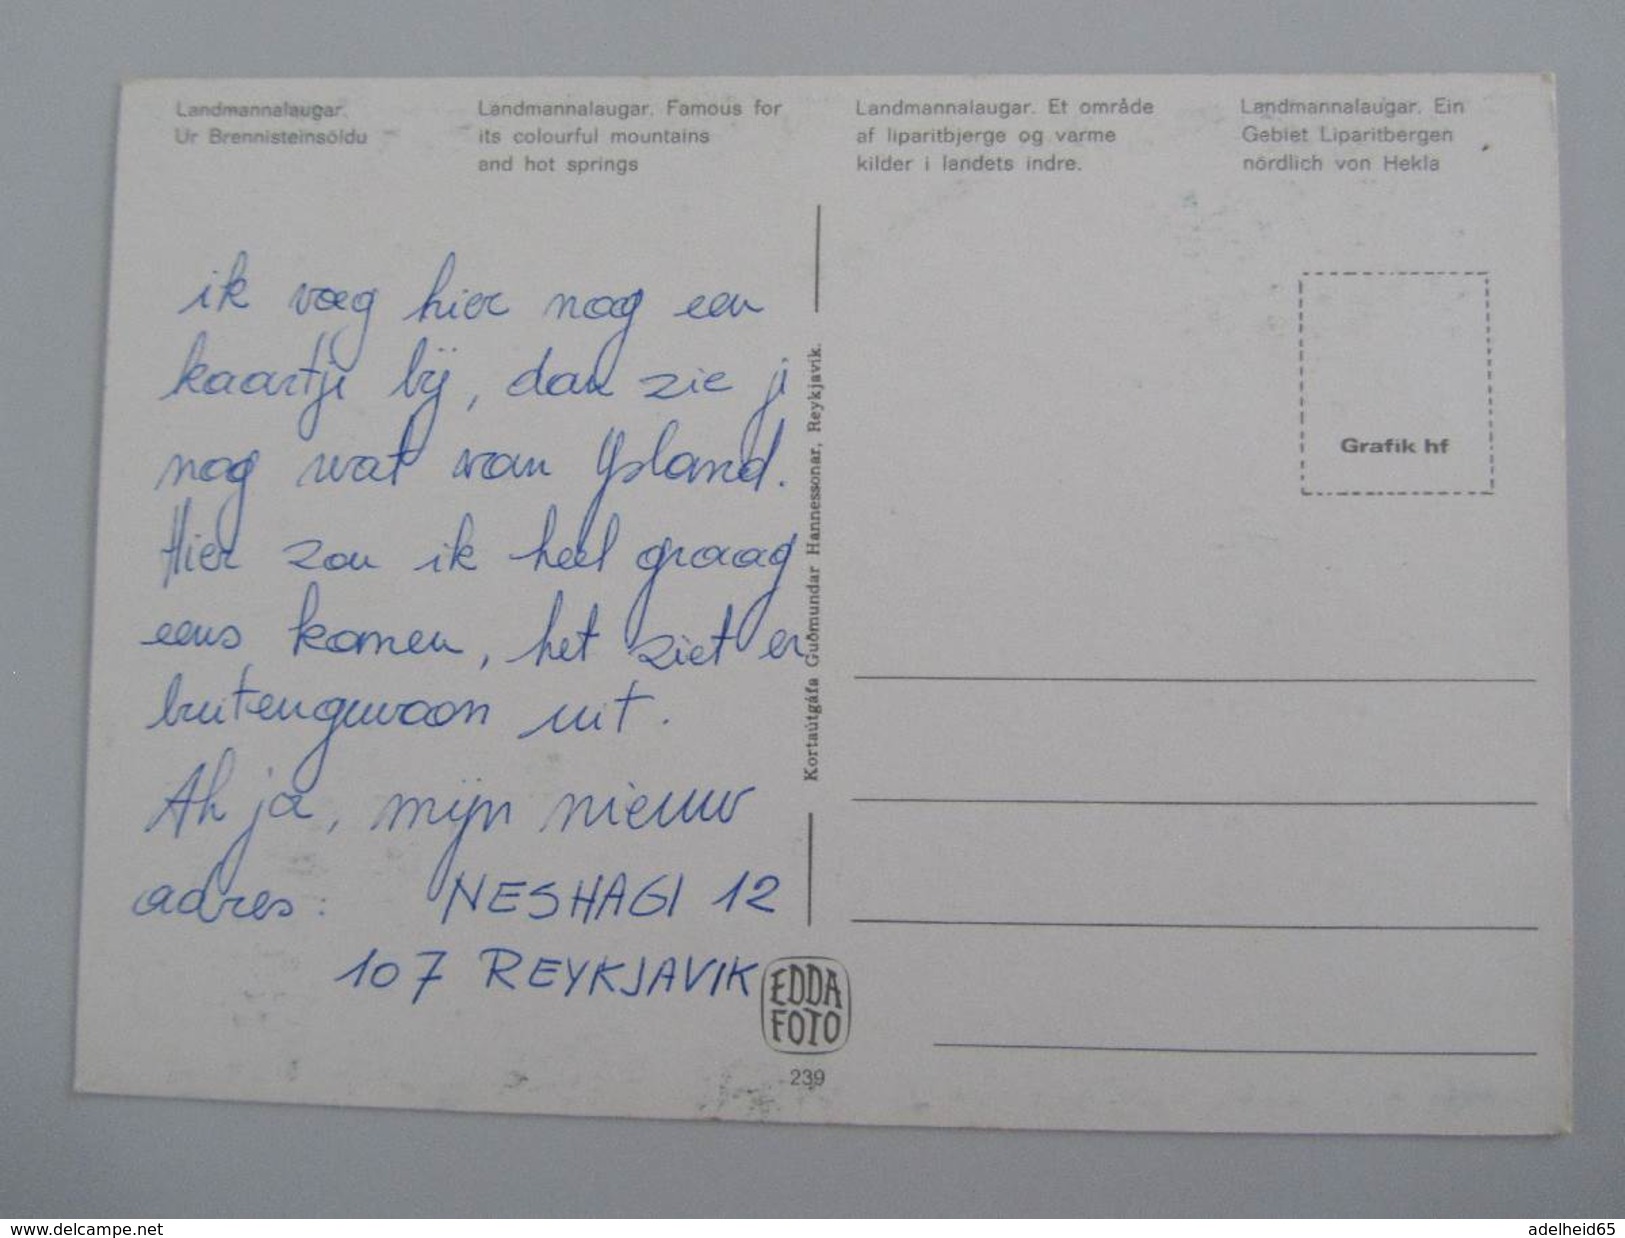 Landmannalaugar.
Ur Brennisteinsöldu
Landmannalaugar. Famous for
its colourful mountains
and hot springs
Landmannalaugar. Et område
af liparitbjerge og varme
kilder i landets indre.
Landmannalaugar. Ein
Gebiet Liparitbergen
nördlich von Hekla
ik voeg hier nog een
kaartje bij, dan zie je
nog wat van Ysland.
Hier zou ik heel graag
eens komen, het ziet er
buitengewoon uit.
Ah ja, mijn nieuw
adres: NESHAGI 12
107 REYKJAVIK
Kortaútgáfa Guðmundar Hannessonar, Reykjavík.
Grafik hf
EDDA
FOTO
239
www.delcampe.net
adelheid65